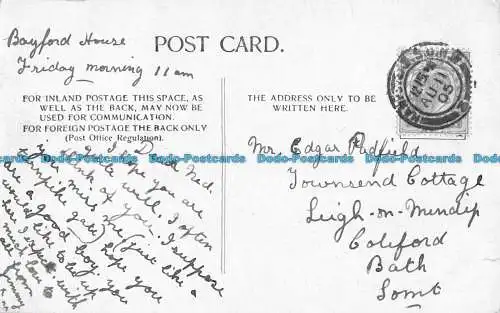 Bayford House
Friday morning 11 am
POST CARD.
FOR INLAND POSTAGE THIS SPACE, AS
WELL AS THE BACK, MAY NOW BE
USED FOR COMMUNICATION.
FOR FOREIGN POSTAGE THE BACK ONLY
(Post Office Regulation).
THE ADDRESS ONLY TO BE
WRITTEN HERE.
AU 11
05
Dodo-Postcards Dodo-Postcards Dodo-Postcards Dodo-Postcards Dodo-Postcards
Mr. Edgar Padfield
Townsend Cottage
Leigh-on-Mendip
Coleford
Bath
Somt
Dear Ned.
I hope you are
quite well. I often
think of you. I suppose
you miss me (just like a
turnpike gate) hope you
are a good boy
would like to
see
much love